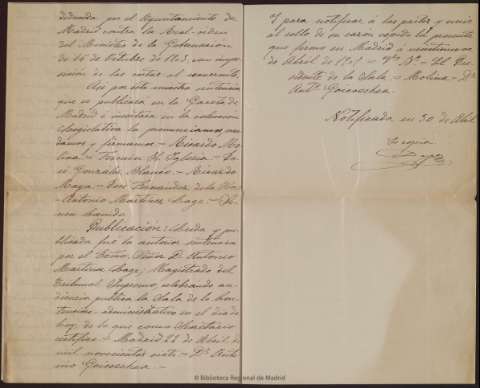 dictada por el Ayuntamiento de
Madrid contra la Real orden
del Ministro de la Gobernacion
de 16 de Octubre de 1903, con impo-
sicion de las costas al recurrente.
Asi por esta nuestra sentencia
que se publicara en la Gaceta de
Madrid é insertara en la coleccion
legislativa la pronunciamos, man-
damos y firmamos = Ricardo Mo-
lina = Fermin H. Iglesia = Jo-
sé Gonzalez Blanco = Ricardo
Maya = José Fernandez de la Hoz
= Antonio Martinez Lage =
Publicacion: Leida y pu-
blicada fué la anterior sentencia
por el Excmo. Señor D. Antonio
Martinez Lage, Magistrado del
Tribunal Supremo, celebrando au-
diencia publica la Sala de lo Con-
tencioso administrativo en el dia de
hoy, de lo que como Secretario
certifico = Madrid 22 de Abril de
mil novecientos siete = Ldo. Anto-
nio Goicoechea. =
Y para notificar á las partes y unir
al rollo de su razon expido la presente
que firmo en Madrid á veintinueve
de Abril de 1907 = Vº Bº = El Pre-
sidente de la Sala = Molina = Ldo.
Antº Goicoechea.
Notificada en 30 de Abril
© Biblioteca Regional de Madrid